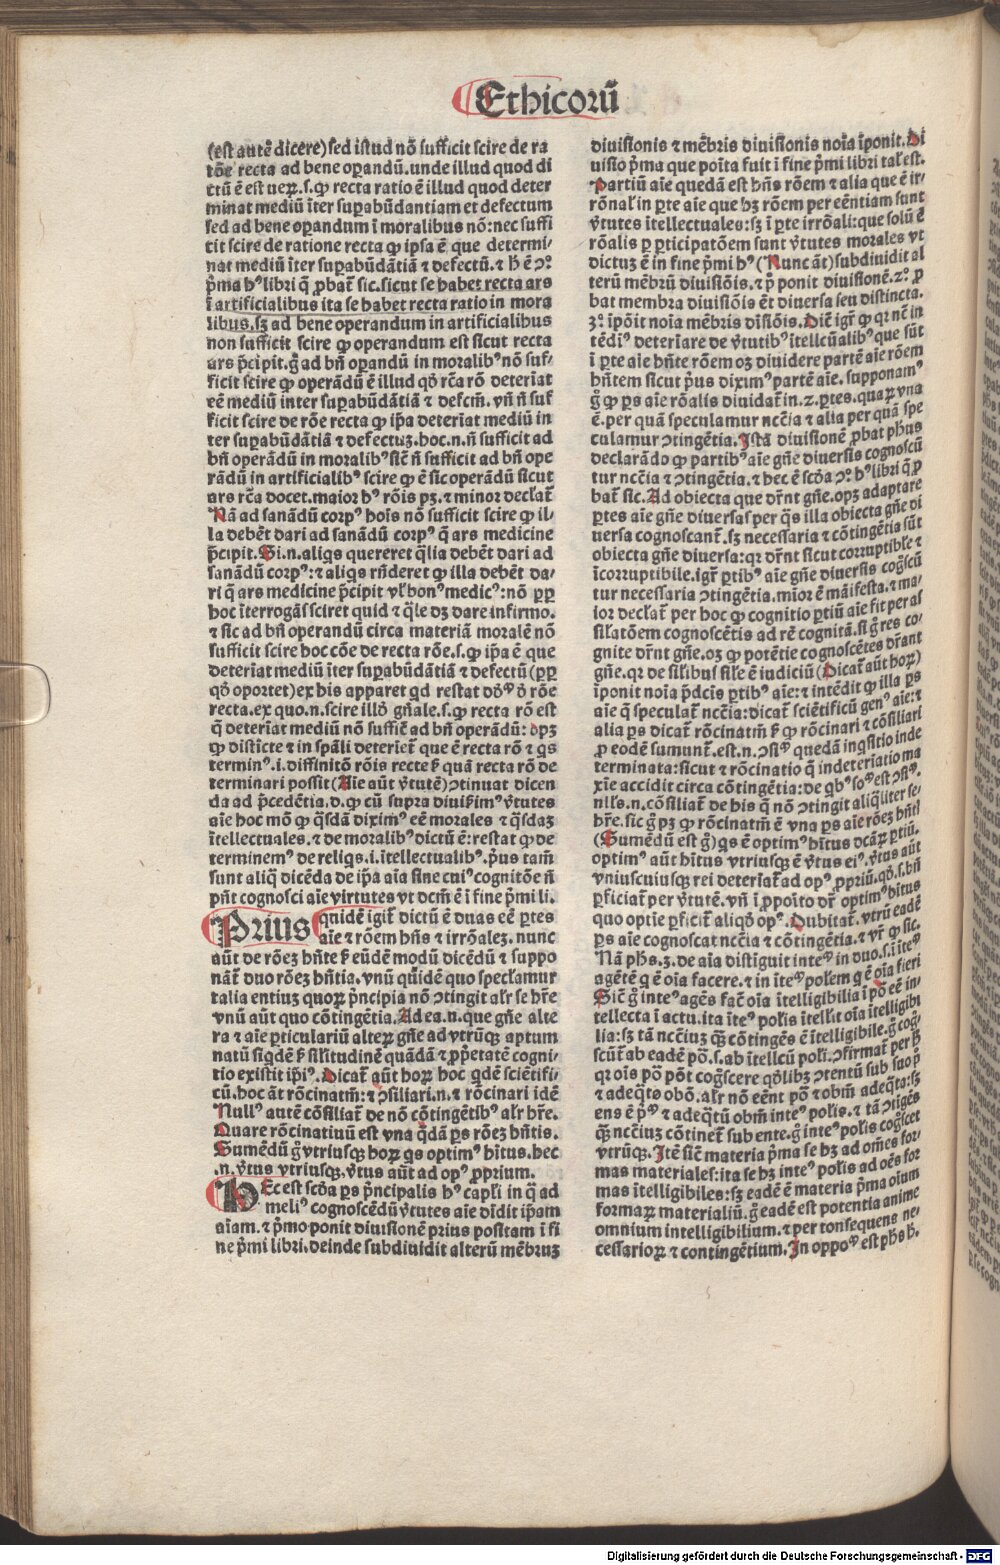 Ethicoꝝ
(est autē dicere) sed istud nō sufficit scire de ra
tōe recta ad bene oꝑandū. unde illud quod di
ctū ē est ueꝝ. s. ꝙ recta ratio ē illud quod deter
minat mediū īter suꝑabūdantiam et defectum
sed ad bene oꝑandum ī moralibus nō: nec suffi
cit scire de ratione recta ꝙ ipsa ē que determi-
nat mediū īter suꝑabūdātiā ⁊ defectū. ⁊ h̄ ē ꝯꝰ
p̄ma hꝰ libri q̄ ꝓbat᷑ sic. sicut se habet recta ars
ī artificialibus ita se habet recta ratio in mora
libus. sꝫ ad bene operandum in artificialibus
non sufficit scire ꝙ operandum est sicut recta
ars p̄cipit. g̊ ad bn̄ oꝑandū in moralibꝰ nō suf-
ficit scire ꝙ operādū ē illud qd̄ rc̄a rō deteriat
eē mediū inter suꝑabūdātiā ⁊ defcm̄. vn̄ n̄ suf
ficit scire de rōe recta ꝙ ip̄a deteriat mediū in
ter suꝑabūdātiā ⁊ defectuꝫ. hoc. n. n̄ sufficit ad
bn̄ operādū in moralibꝰ sic̄ n̄ sufficit ad bn̄ ope
rādū in artificialibꝰ scire ꝙ ē sic operādū sicut
ars rc̄a docet. maior hꝰ rōis pꝫ. ⁊ minor declat᷑
Nā ad sanādū corpꝰ hois nō sufficit scire ꝙ il-
la debēt dari ad sanādū corpꝰ q̄ ars medicine
p̄cipit. Si. n. aliqs quereret q̄lia debēt dari ad
sanādū corpꝰ: ⁊ aliqs rn̄deret ꝙ illa debēt da-
ri q̄ ars medicine p̄cipit vl̓ bonꝰ medicꝰ: nō ꝓp
hoc īterrogās sciret quid ⁊ q̄le dꝫ dare infirmo.
⁊ sic ad bn̄ operandū circa materiā moralē nō
sufficit scire hoc cōe de recta rōe. s. ꝙ ip̄a ē que
deteriat mediū īter suꝑabūdātiā ⁊ defectū (ꝓp
qd̄ oportet) ex his apparet qd restat
recta. ex quo. n. scire illd̓ gn̄ale. s. ꝙ recta rō est
q̄ deteriat mediū nō suffic̄ ad bn̄ operādū: opꝫ
ꝙ distīcte ⁊ in sp̄ali deteriet᷑ que ē recta rō ⁊ qs
terminꝰ. i. diffinitō rōis recte ẜm quā recta rō de
terminari possit (Aīe aūt v̓tutē) ꝯtinuat dicen
da ad p̄cedētia. d. ꝙ cū supra diuisimꝰ v̓tutes
aīe hoc mō ꝙ qsdā diximꝰ eē morales ⁊ qsdaꝫ
ītellectuales. ⁊ de moralibꝰ dictū ē: restat ꝙ de
terminemꝰ de reliqs. i. ītellectualibꝰ. p̄us tam̄
sunt aliq̄ dicēda de ip̄a aīa sine cuiꝰ cognitōe n̄
pn̄t cognosci aīe virtutes vt dcm̄ ē ī fine p̄mi li.
Prius quidē igit᷑ dictū ē duas eē ꝑtes
aīe ⁊ rōem hn̄s ⁊ irrōaleꝫ. nunc
aūt de rōeꝫ hn̄te ẜ eūdē modū dicēdū ⁊ suppo
nāt᷑ duo rōeꝫ hn̄tia. vnū quidē quo speclamur
talia entium quoꝝ p̄ncipia nō ꝯtingit alr̄ se hr̄e
vnū aūt quo cōtingētia. Ad ea. n. que gn̄e alte
ra ⁊ aīe ꝑticulariū alteꝝ gn̄e ad vtrūqꝫ aptum
natū siqdē ẜ silītudinē quādā ⁊ ꝓp̓etatē cogni-
tio existit ip̄iꝰ. Dicat᷑ aūt hoꝝ hoc qdē sciētifi-
cū. hoc āt rōcinatm̄: ⁊ ꝯsiliari. n. ⁊ rōcinari idē
Nullꝰ autē cōsiliat᷑ de nō cōtingētibꝰ alr̄ hr̄e.
Quare rōcinatiuū est vna q̄dā ꝑs rōeꝫ hn̄tis.
Sumēdū g̊ vtriusqꝫ hoꝝ qs optimꝰ hītus. hec
. n. v̓tus vtriusqꝫ. v̓tus aūt ad opꝰ ꝓprium.
Hec est scd̄a ꝑs p̄ncipalis hꝰ capl̓i in q̄ ad
meliꝰ cognoscēdū v̓tutes aīe dīdit ip̄am
aīam. ⁊ p̄mo ponit diuisionē prius positam ī fi
ne p̄mi libri. deinde subdiuidit alterū mēbruꝫ
diuisionis ⁊ mēbris diuisionis noīa īponit. Di
uisio p̄ma que poīta fuit ī fine p̄mi libri tal̓ est.
Partiū aīe quedā est hn̄s rōem ⁊ alia que ē ir-
rōnal̓ in ꝑte aīe que hꝫ rōem per eēntiam sunt
v̓tutes ītellectuales: sꝫ ī ꝑte irrōali: que solū ē
rōalis ꝑ ꝑticipatōem sunt v̓tutes morales vt
dictuꝫ ē in fine p̄mi hꝰ (Nunc āt) subdiuidit al
terū mēbrū diuisiōis. ⁊ pꝰ ponit diuisionē. 2ꝰ. ꝓ
bat membra diuisiōis eē diuersa seu distincta.
3ꝰ. īpōit noīa mēbris dīsiōis. Dic̄ igr̄ ꝙ qr nc̄ in
tēdiꝰ deteriare de v̓tutibꝰ ītellcūalibꝰ que sūt
ī ꝑte aīe hn̄te rōem oꝫ diuidere partē aīe rōem
hn̄tem sicut p̓us diximꝰ partē aīe. supponamꝰ
g̊ ꝙ ꝑs aīe rōalis diuidat᷑ in. 2. ꝑtes. quaꝝ vna
ē. per quā speculamur nccīa ⁊ alia per quā spe
culamur ꝯtingētia. Istā diuisionē ꝓbat phus
declarādo ꝙ partibꝰ aīe gn̄e diuersis cognoscū
tur nccīa ⁊ ꝯtingētia. ⁊ hec ē scd̄a ꝯꝰ hꝰ libri q̄ ꝓ
bat᷑ sic. Ad obiecta que dr̄nt gn̄e. opꝫ adaptare
ꝑtes aīe gn̄e diuersas per qs illa obiecta gn̄e di
uersa cognoscant᷑. sꝫ necessaria ⁊ cōtingētia sūt
obiecta gn̄e diuersa: qr dr̄nt sicut corruptibl̓e ⁊
īcorruptibile. igr̄ ꝑtibꝰ aīe gn̄e diuersis cog̊scū
tur necessaria ꝯtingētia. mīor ē māifesta. ⁊ ma-
ior declat᷑ per hoc ꝙ cognitio ꝑtiū aīe fit per as
sil̓atōem cognoscētis ad rē cognitā. si g̊ res co-
gnite dr̄nt gn̄e. oꝫ ꝙ potētie cognoscētes dr̄ant
gn̄e. qr de sil̓ibus sil̓e ē iudiciū (Dicat᷑ aūt hoꝝ)
īponit noīa p̄dcīs ꝑtibꝰ aīe: ⁊ intēdit ꝙ illa ꝑs
aīe q̄ speculat᷑ nccīa: dicat᷑ sciētificū genꝰ aīe: ⁊
alia ꝑs dicat᷑ rōcinatm̄ ẜ ꝙ rōcinari ⁊ cōsiliari
ꝓ eodē sumunt᷑. est. n. ꝯsiꝰ quedā inqsitio inde
terminata: sicut ⁊ rōcinatio q̄ indeteriatio ma
xīe accidit circa cōtingētia: de qbꝰ soꝰ est ꝯsiꝰ.
nl̓ls. n. cōsiliat᷑ de his q̄ nō ꝯtingit aliq̄liter se
hr̄e. sic g̊ pꝫ ꝙ rōcinatm̄ ē vna ꝑs aīe rōeꝫ hn̄ti
(Sumēdū est g̊) qs ē optimꝰ hītus dcāꝝ ꝑtiū.
optimꝰ aūt hītus vtriusqꝫ ē v̓tus eiꝰ. v̓tus aūt
vniuscuiusqꝫ rei deteriat᷑ ad opꝰ ꝓpriū. qd̄. s. bn̄
ꝑficiat᷑ per v̓tutē. vn̄ ī ꝓpoīto dr̄ optimꝰ hītus
quo optīe ꝑficit᷑ aliqd̄ opꝰ. Dubitat᷑. vtrū eadē
ꝑs aīe cognoscat nccīa ⁊ cōtingētia. ⁊ vr̄ ꝙ sic.
Nā phs. 3. de aīa distiguit inteꝰ in duo. s. ī iteꝰ
agētē q̄ ē oīa facere. ⁊ in iteꝰ pol̓em q̄ ē oīa fieri
Sic̄ g̊ inteꝰ agēs fac̄ oīa ītelligibilia ī pō eē in-
tellecta ī actu. ita īteꝰ pol̓is ītell̓it oīa ītelligibi
lia: sꝫ tā nccīuꝫ qꝫ cōtingēs ē ītelligibile. g̊ cog̊
scūt᷑ ab eadē pō. s. ab ītellcū pol̓i. ꝯfirmat᷑ per h̄
qr ois pō pōt cog̊scere qd̄libꝫ ꝯtentū sub suo ꝓ
⁊ adeq̄to obō. alr̄ nō eēnt pō ⁊ obm̄ adeq̄ta: sꝫ
ens ē pꝰ ⁊ adeq̄tū obm̄ inteꝰ pol̓is. ⁊ tā ꝯtigēs
qꝫ nccīuꝫ cōtinet᷑ sub ente. g̊ inteꝰ pol̓is cog̊scet
vtrūqꝫ. Itē sic̄ materia p̄ma se hꝫ ad om̄es for
mas materiales: ita se hꝫ inteꝰ pol̓is ad oēs for
mas ītelligibiles: sꝫ eadē ē materia p̄ma oium
formaꝝ materialiū. g̊ eadē est potentia anime
omnium intelligibilium. ⁊ per consequens ne-
cessarioꝝ ⁊ contingētium. In oppoꝰ est phs h̄.
Digitalisierung gefördert durch die Deutsche Forschungsgemeinschaft - DFG